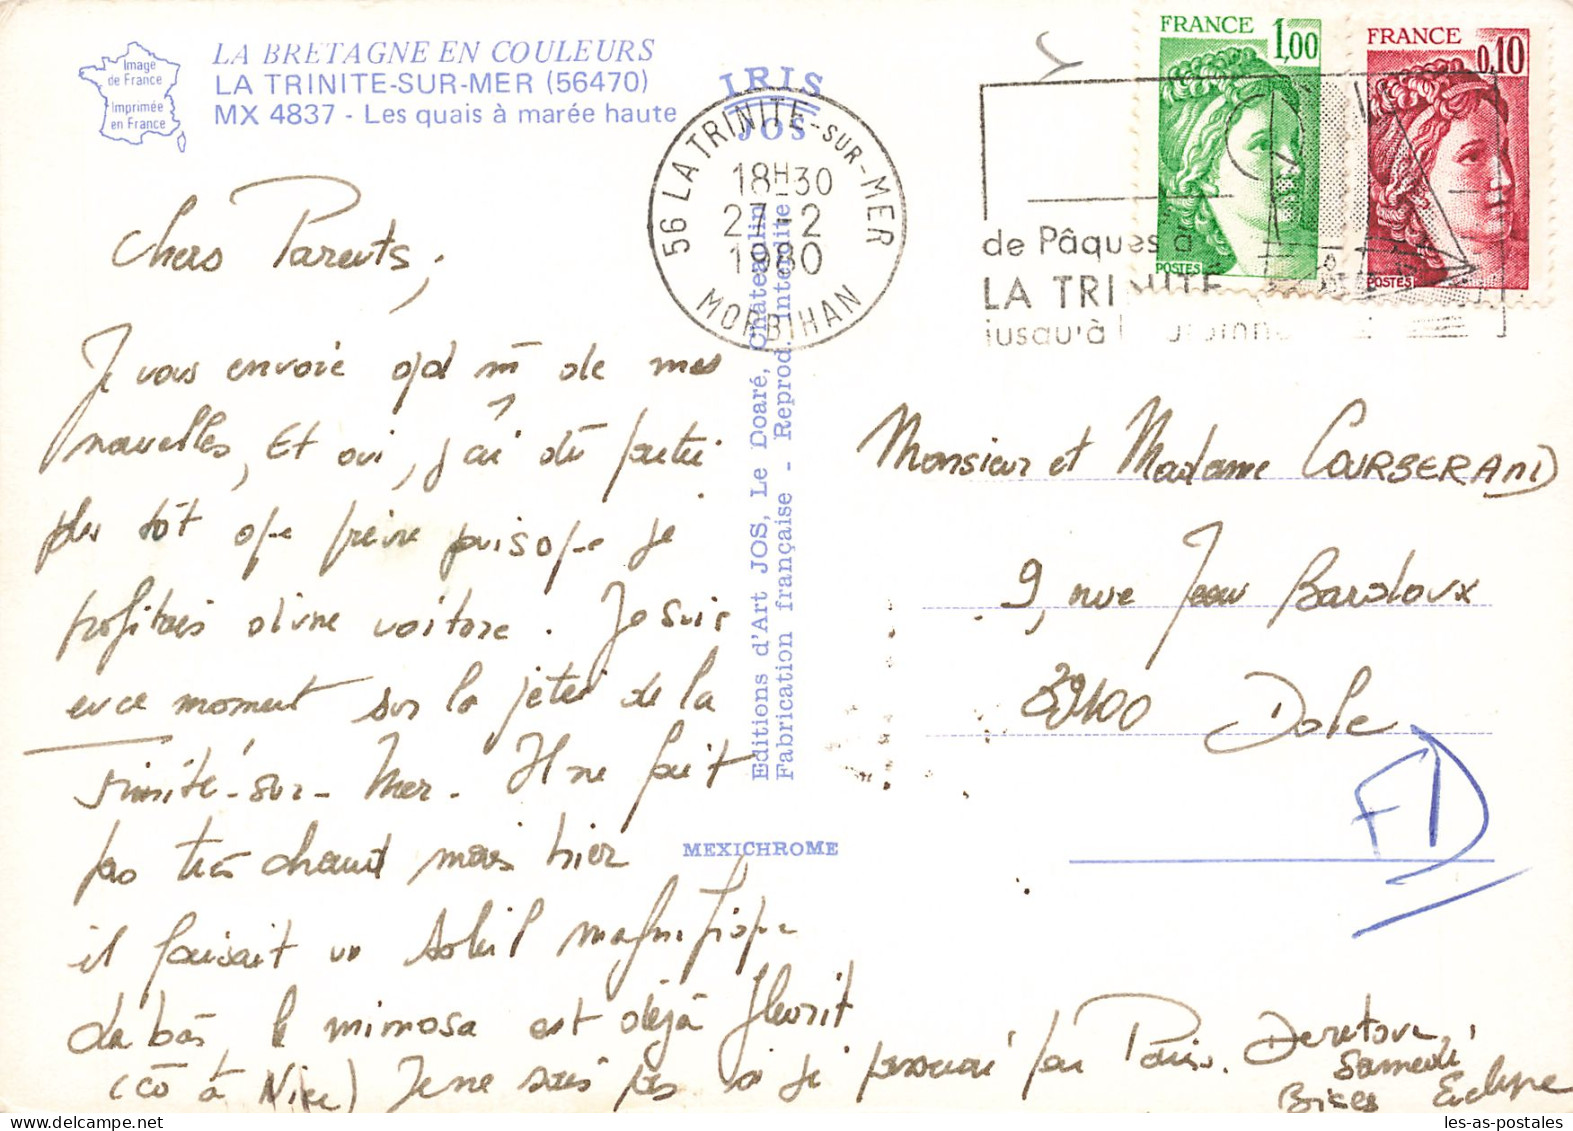 LA BRETAGNE EN COULEURS
LA TRINITE-SUR-MER (56470)
MX 4837 - Les quais à marée haute
Image
de France
Imprimée
en France
IRIS
JOS
56 LA TRINITE-SUR-MER
18H30
27-2
1980
MORBIHAN
FRANCE
1,00
POSTES
FRANCE
0,10
POSTES
de Pâques à
LA TRINITE
jusqu'à
Chers Parents,
Je vous envoie qd m̄ de mes
nouvelles, Et oui, j'ai dû partir
plus tôt que prévu puisque je
profitais d'une voiture. Je suis
en ce moment sur la jetée de la
Trinité-sur-Mer. Il ne fait
pas très chaud mais hier
il faisait un soleil magnifique
là bas, le mimosa est déjà fleurit
(cō à Nice) Je ne sais pas si je passerai par Paris. De retour
samedi,
Bises
Editions d'Art JOS, Le Doaré, Châteaulin
Fabrication française - Reprod. Interdite
MEXICHROME
Monsieur et Madame COURBERAND
9, rue Jean Bardoux
39100 Dole
FD
les-as-postales